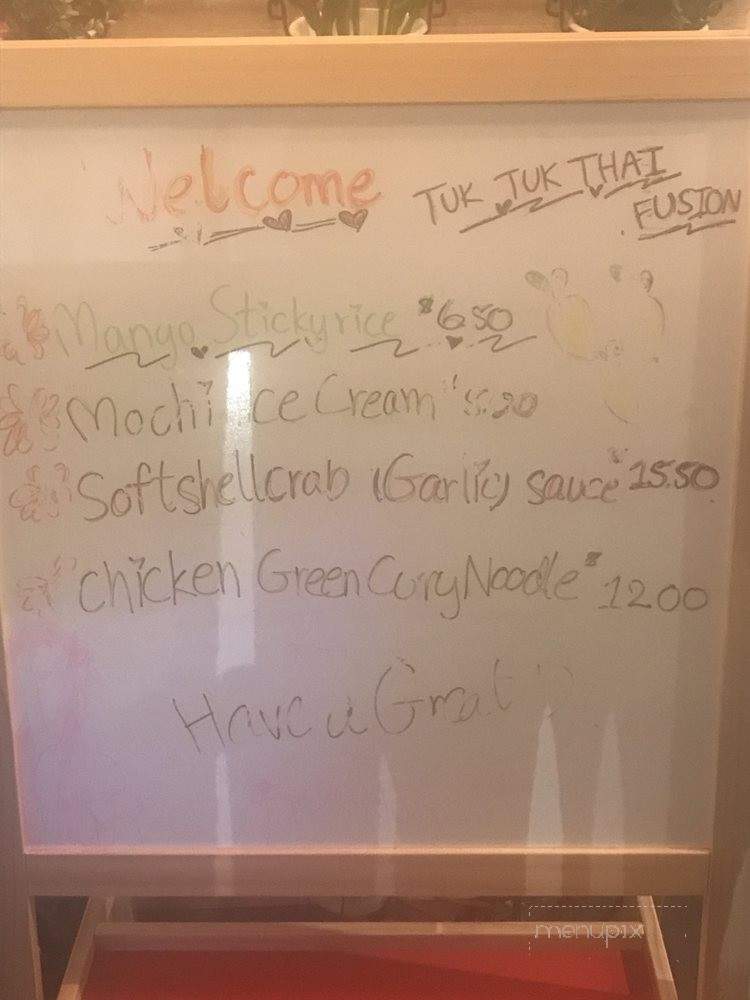 Welcome TUK TUK THAI FUSION
Mango Stickyrice $6.50
Mochi ice Cream
Softshellcrab (Garlic) sauce $15.50
Chicken Green Curry Noodle $12.00
Have a Great
menupix